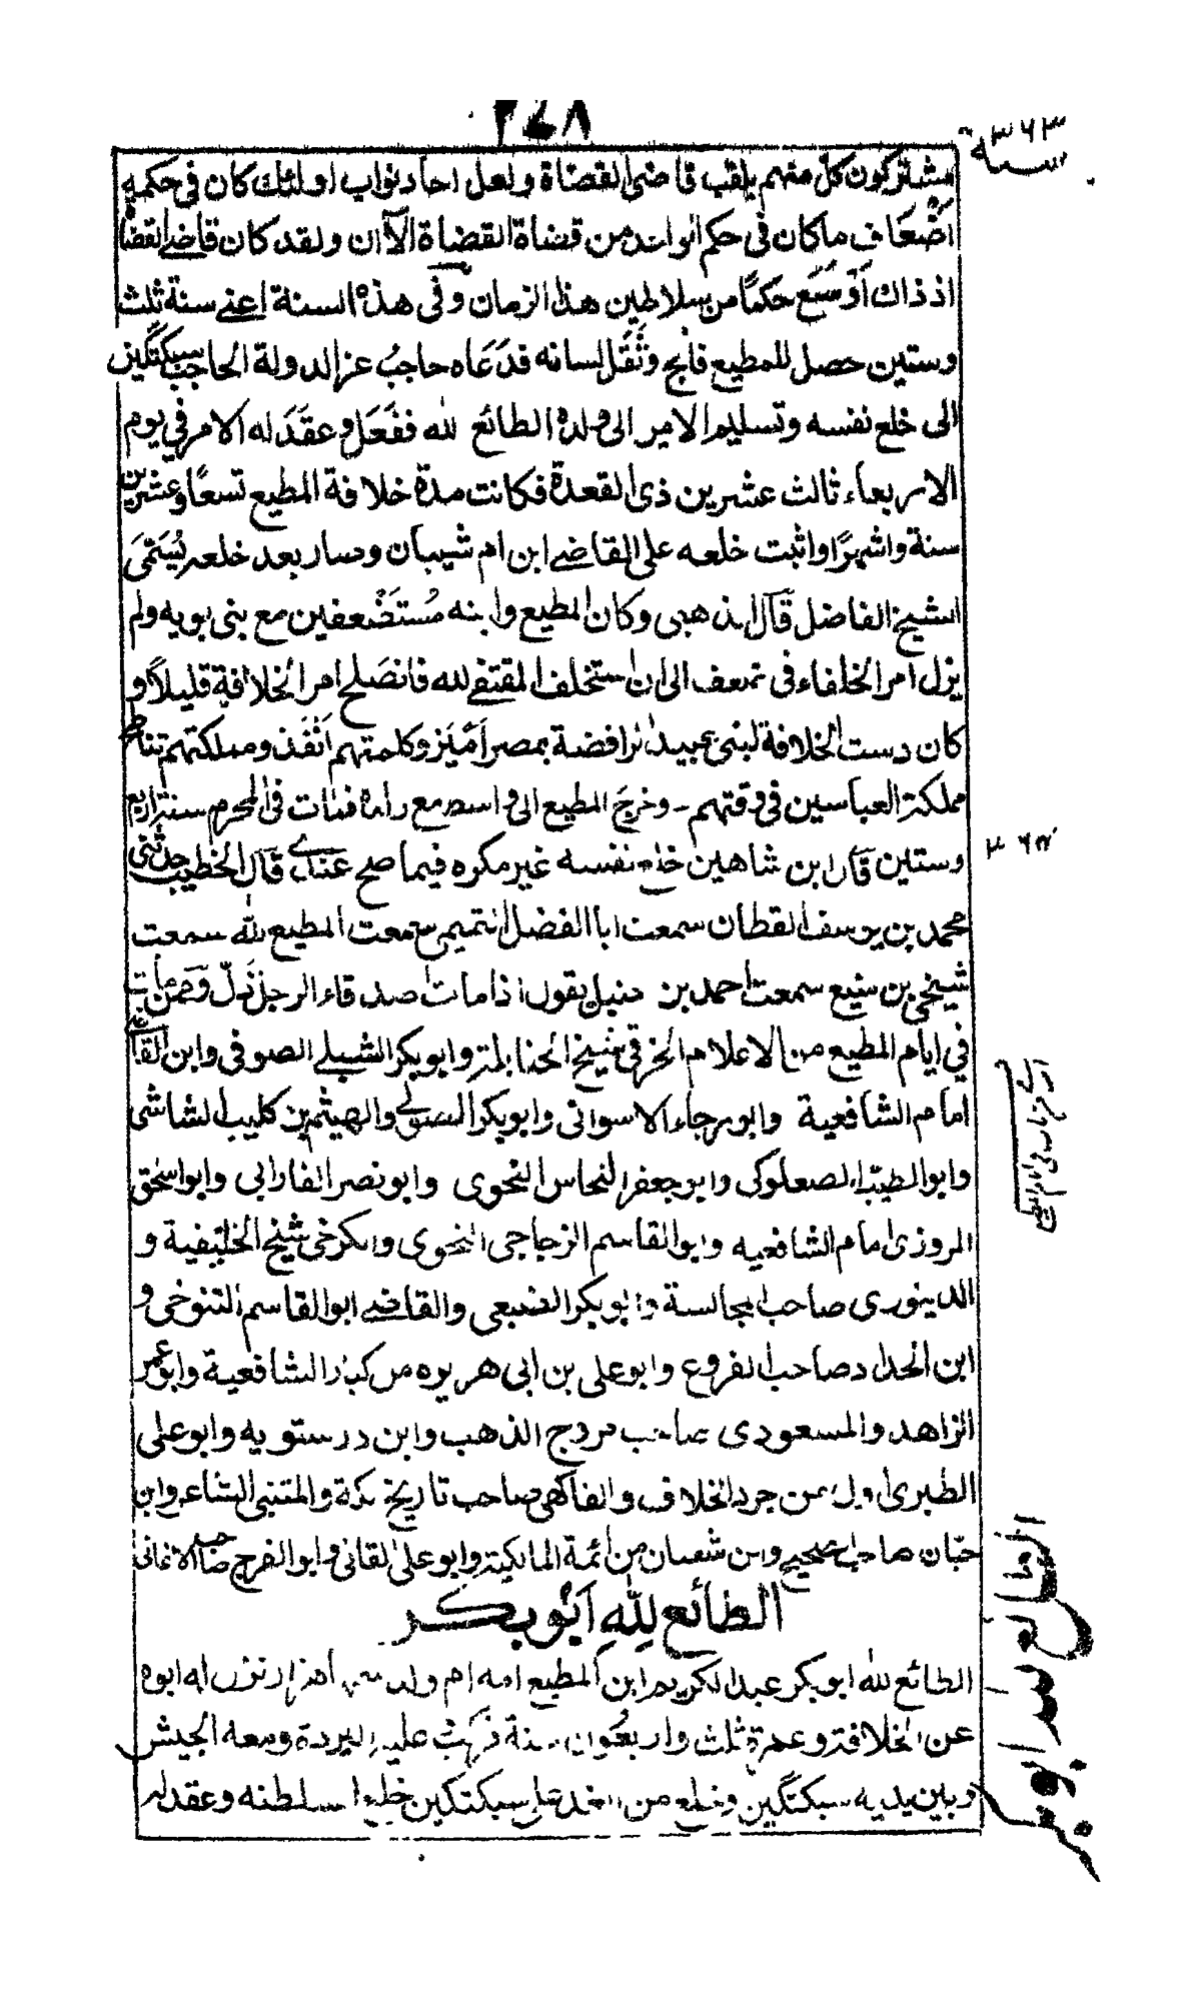 ٢٧٨
سنة ٣٦٣
مشتركون كل منهم يلقب قاضى القضاة ولعل احاد نواب اولئك كان فى حكمه
اضْعَاف ماكان فى حكم الواحد من قضاة القضاة الآان ولقد كان قاضى القضاة
اذ ذاك اَوْسَع حكمًا من سلاطين هذا الزمان وفى هذه السنة اعنى سنة ثلث
وستين حصل للمطيع فالج وثَقَل لسانه فدَعَاه حاجبُ عز الدولة الحاجب سبكتگين
الى خلع نفسه وتسليم الامر الى ولده الطائع لله ففَعَل وعقَدَ له الامر فى يوم
الاربعاء ثالث عشرين ذى القعدة فكانت مدة خلافة المطيع تسعًا وعشرين
سنة واشهرًا واثبت خلعه على القاضى ابن ام شيبان وصار بعد خلعه يُسَمّىَ
الشيخ الفاضل قال الذهبى وكان المطيع وابنه مُستَضْعفين مع بنى بويه ولم
يزل امر الخلفاء فى ضعف الى ان استخلف المقتفى لله فانصَلح امر الخلافة قليلاً و
كان دست الخلافة لبنى عبيد الرافضة بمصر اَمْيَز وكلمتهم انْفَذ ومملكتهم تناطح
مملكة العباسين فى وقتهم - وخرجَ المطيع الى واسط مع ولده فمات فى المحرم سنة اربع
٣٦٤
وستين قال ابن شاهين خلع نفسه غير مكره فيما صح عندى قال الخطيب حدثنى
محمد بن يوسف القطان سمعت ابا الفضل التميمى سمعت المطيع لله سمعت
شيخى بن منيع سمعت احمد بن حنبل يقول اذا مات اصدقاء الرجل ذَلّ وممن مات
فى ايام المطيع من الاعلام الخرقى شيخ الحنابلة وابوبكر الشبلى الصوفى وابن القاص
امام الشافعية وابورجاء الاسوانى وابوبكر الصولى والهيثم بن كليب الشاشى
وابو الطيب الصعلوكى وابوجعفر النحاس النحوى وابونصر الفارابى وابواسحٰق
المروزى امام الشافعيه وابوالقاسم الزجاجى النحوى والكرخى شيخ الحنفية و
الدينورى صاحب المجالسة وابوبكر الضبعى والقاضى ابوالقاسم التنوخى و
ابن الحداد صاحب الفروع وابوعلى بن ابى هريره من كبار الشافعية وابوعمر
الزاهد والمسعودى صاحب مروج الذهب وابن درستويه وابوعلى
الطبرى اول من جرد الخلاف والفاكهى صاحب تاريخ مكة والمتنبى الشاعر وابن
حبّان صاحب الصحيح وابن شعبان من ائمة المالكية وابوعلى القالى وابوالفرج صاحب الاغانى
الطائع لِلّٰهِ اَبُو بكر
الطائع لله ابوبكر عبدالكريم ابن المطيع امه ام ولد اسمها هزار نزل له ابوه
عن الخلافة وعمره ثلث واربعُون سنة فركب عليه البردة ومعه الجيش
وبين يديه سبكتگين وخلع من الغد على سبكتكين خلع السلطنه وعقد له
الطائع لله ابوبكر